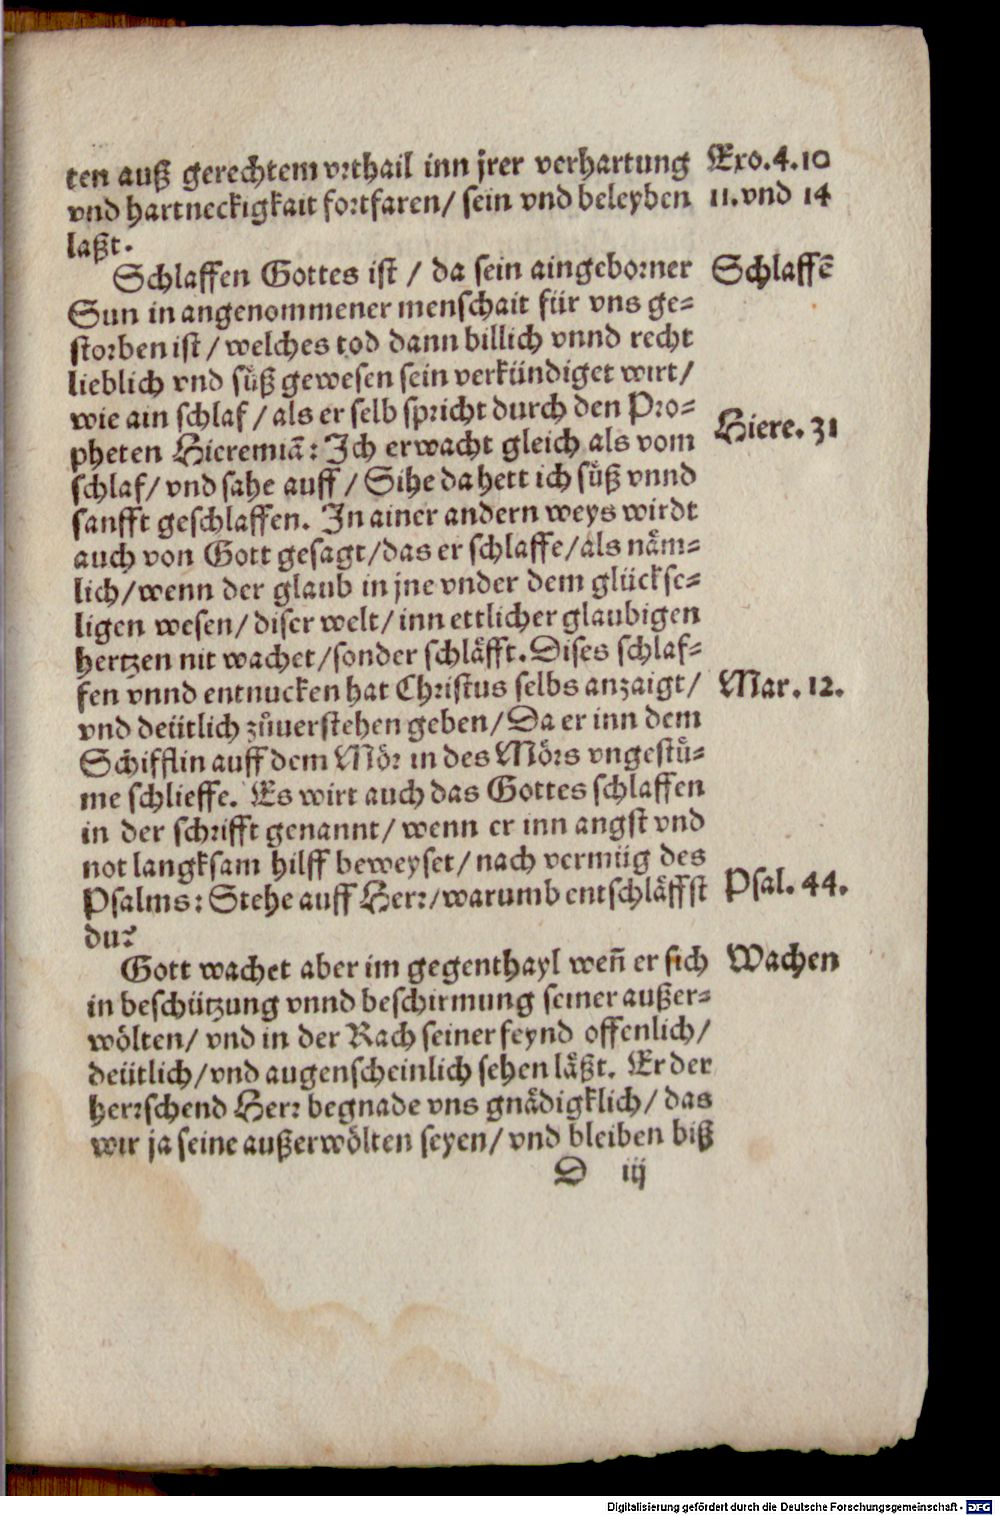 ten auß gerechtem vrthail inn jrer verhartung Exo. 4. 10
vnd hartneckigkait fortfaren/ sein vnd beleyben 11. vnd 14
laßt.
Schlaffen Gottes ist / da sein aingeborner Schlaffē
Sun in angenommener menschait für vns ge-
storben ist / welches tod dann billich vnnd recht
lieblich vnd süß gewesen sein verkündiget wirt/
wie ain schlaf / als er selb spricht durch den Pro-
pheten Hieremiā: Ich erwacht gleich als vom Hiere. 31
schlaf/ vnd sahe auff / Sihe da hett ich süß vnnd
sanfft geschlaffen. In ainer andern weys wirdt
auch von Gott gesagt/ das er schlaffe/ als näm-
lich/ wenn der glaub in jne vnder dem glückse-
ligen wesen/ diser welt/ inn ettlicher glaubigen
hertzen nit wachet/ sonder schläfft. Dises schlaf-
fen vnnd entnucken hat Christus selbs anzaigt/ Mar. 12.
vnd deütlich zůuerstehen geben/ Da er inn dem
Schifflin auff dem Mör in des Mörs vngestů-
me schlieffe. Es wirt auch das Gottes schlaffen
in der schrifft genannt/ wenn er inn angst vnd
not langksam hilff beweyset/ nach vermüg des
Psalms: Stehe auff Herr/ warumb entschläffst Psal. 44.
du?
Gott wachet aber im gegenthayl weñ er sich Wachen
in beschützung vnnd beschirmung seiner außer-
wölten/ vnd in der Rach seiner feynd offenlich/
deütlich/ vnd augenscheinlich sehen läßt. Er der
herrschend Herr begnade vns gnädigklich/ das
wir ja seine außerwölten seyen/ vnd bleiben biß
D iij
Digitalisierung gefördert durch die Deutsche Forschungsgemeinschaft - DFG